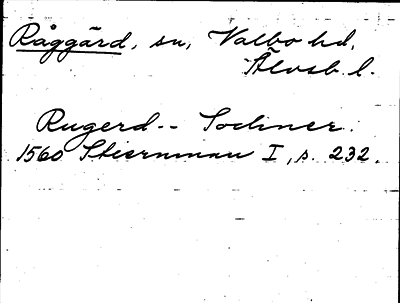 Råggärd, sn, Valbo hd,
Älvsb. l.
Rugerd-- Sochner.
1560 Stiernman I, s. 232.